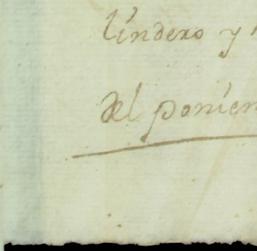 lindero y
del ponien